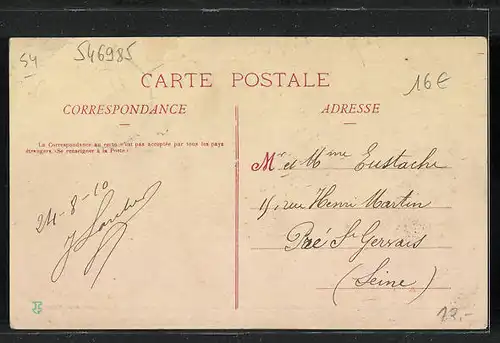 54
546985
16€
CARTE POSTALE
CORRESPONDANCE
ADRESSE
La Correspondance au verso n'est pas acceptée par tous les pays
étrangers. (Se renseigner à la Poste.)
Mr et Mme Eustache
15, rue Henri Martin
Pré St Gervais
(Seine)
24-8-10
12.-